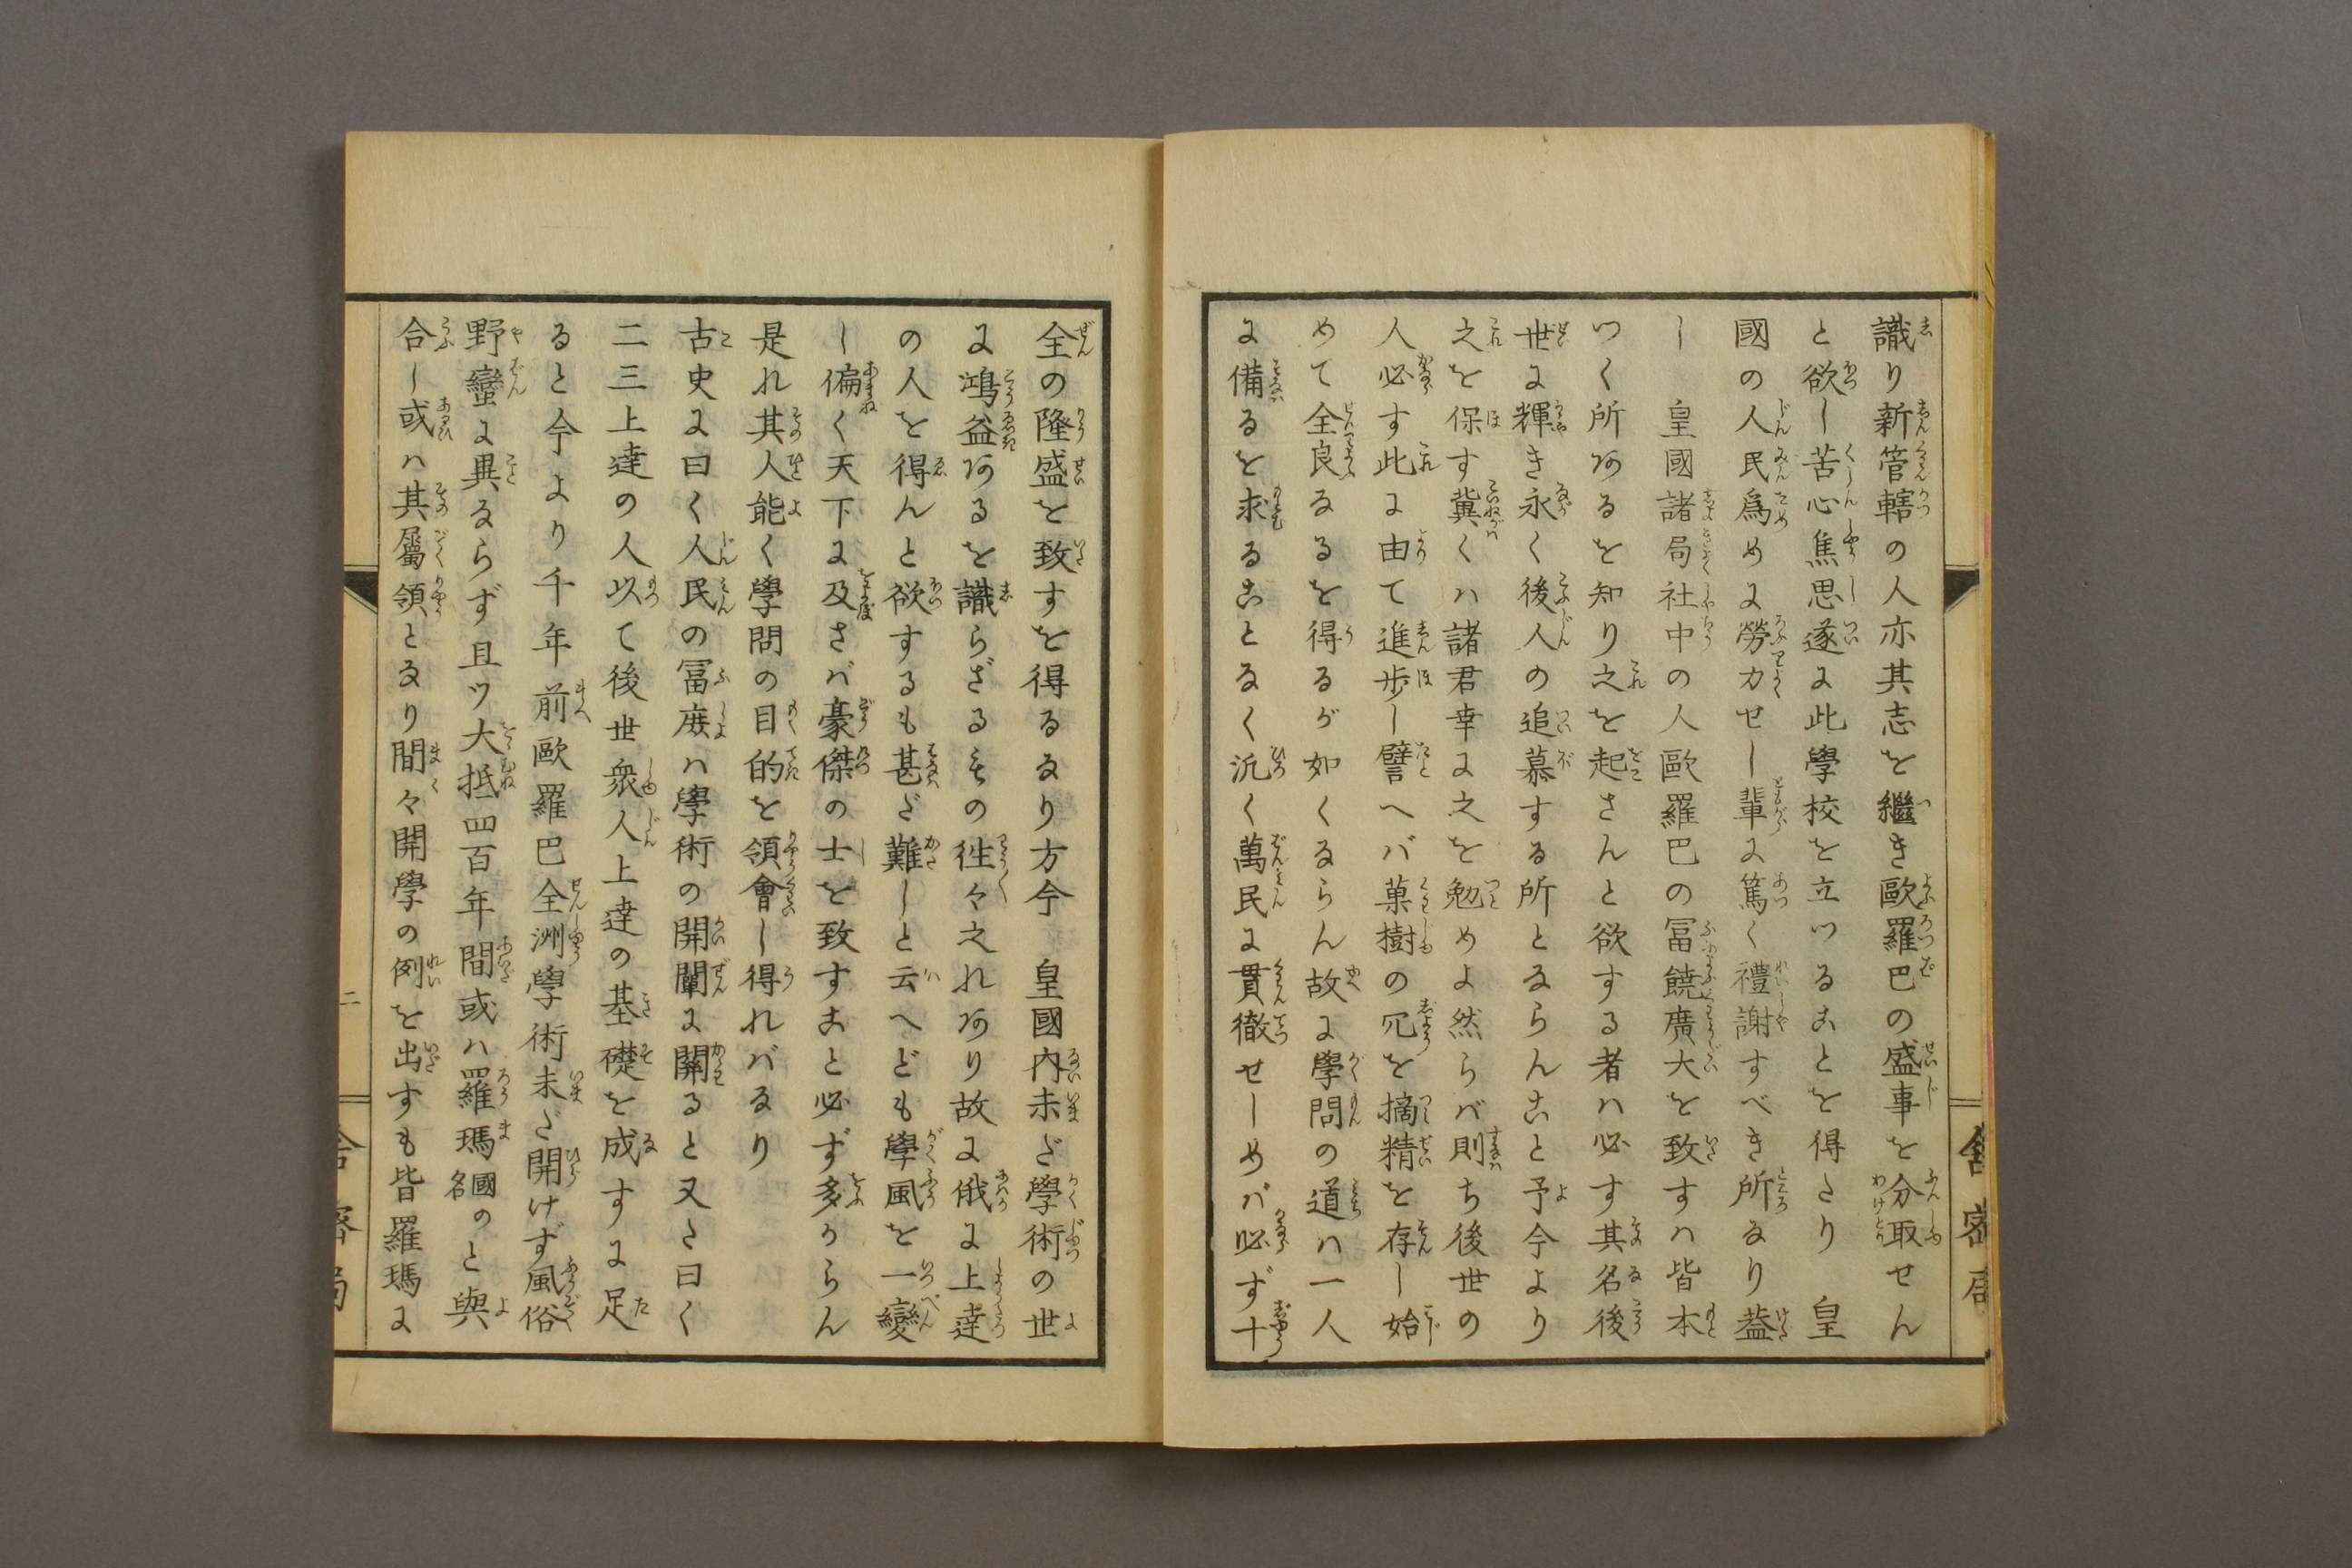 識り新管轄の人亦其志を繼き歐羅巴の盛事を分取せん
と欲し苦心焦思遂に此學校を立つることを得たり　皇
國の人民爲めに勞力せし輩に篤く禮謝すべき所なり葢
し　皇國諸局社中の人歐羅巴の冨饒廣大を致すハ皆本
つく所あるを知り之を起さんと欲する者ハ必す其名後
世に輝き永く後人の追慕する所とならんこと予今より
之を保す冀くハ諸君幸に之を勉めよ然らバ則ち後世の
人必す此に由て進歩し譬へバ菓樹の冗を摘精を存し始
めて全良なるを得るが如くならん故に學問の道ハ一人
に備るを求ることなく汎く萬民に貫徹せしめバ必ず十
全の隆盛を致すを得るなり方今　皇國内未だ學術の世
に鴻益あるを識らざるもの徃々之れあり故に俄に上達
の人を得んと欲するも甚だ難しと云へども學風を一變
し徧く天下に及さバ豪傑の士を致すこと必ず多からん
是れ其人能く學問の目的を領會し得れバなり
古史に曰く人民の冨庶ハ學術の開闡に關ると又た曰く
二三上達の人以て後世衆人上達の基礎を成すに足
ると今より千年前歐羅巴全洲學術未だ開けず風俗
野蠻に異ならず且ツ大抵四百年間或ハ羅瑪國名のと與
合し或ハ其屬領となり間々開學の例を出すも皆羅瑪に
舍密局
二
舍密局